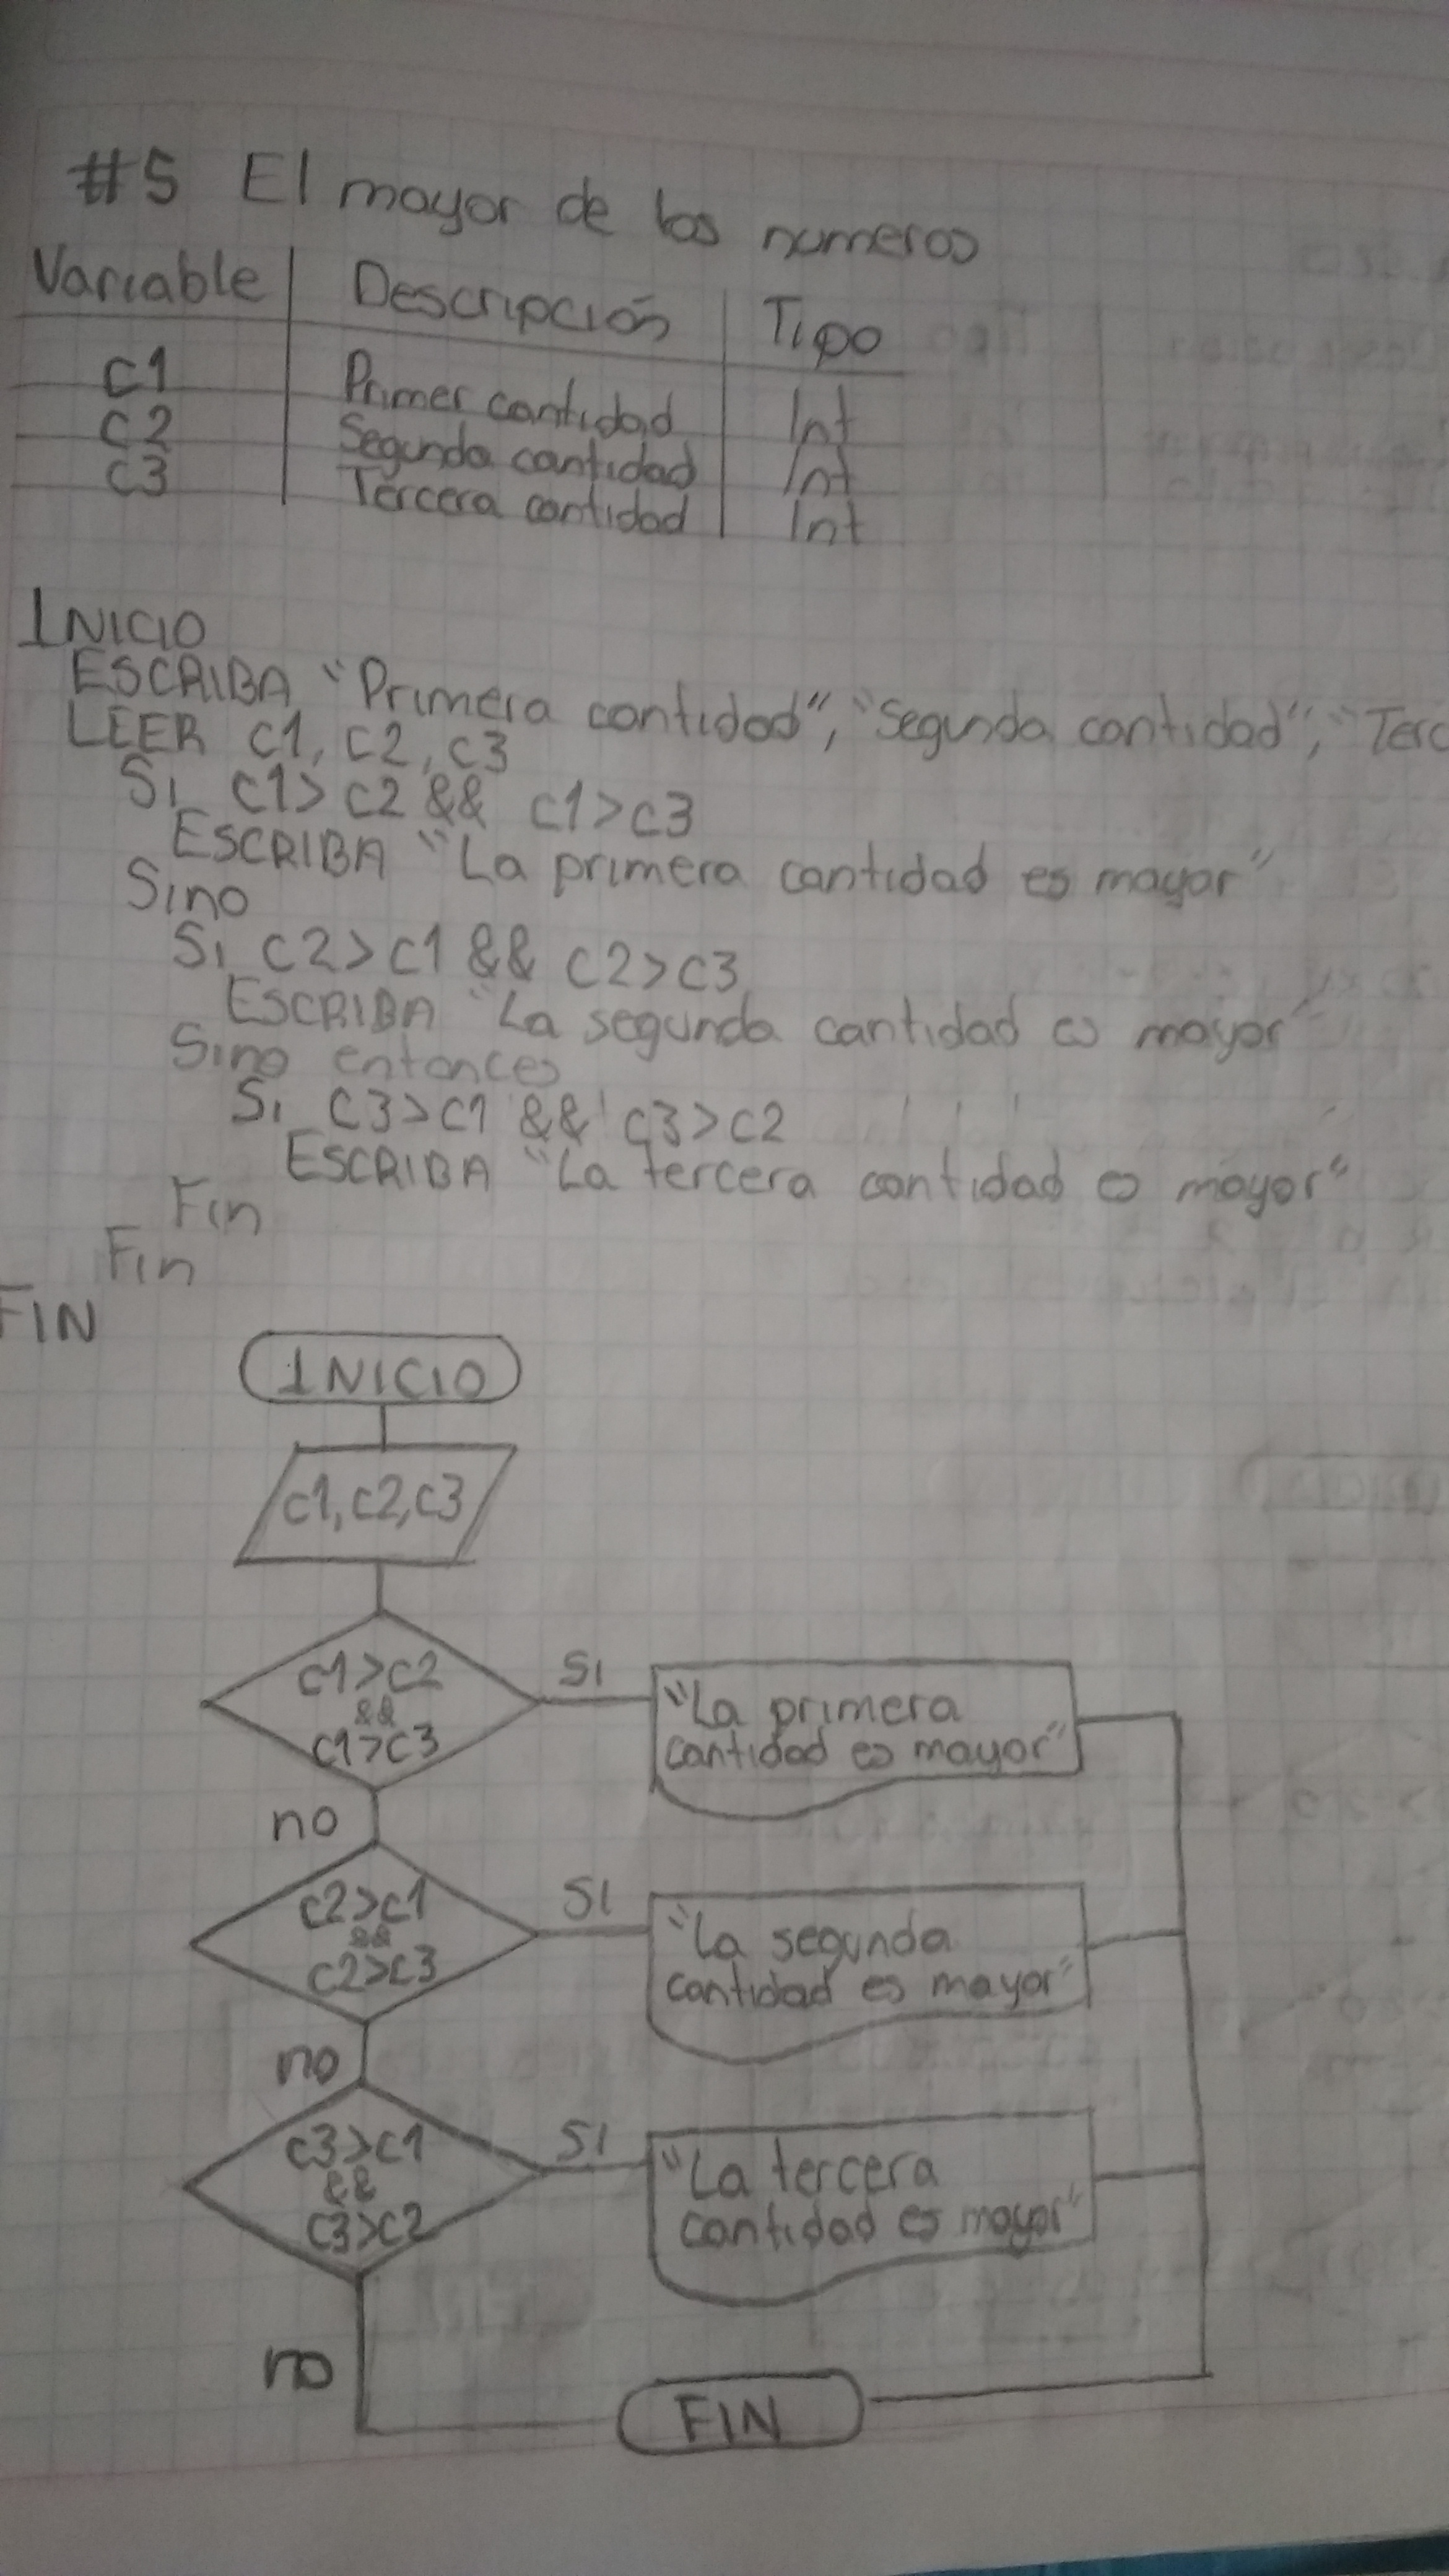 #5 El mayor de los numeros
Variable Descripción Tipo
C1 Primer cantidad Int
C2 Segunda cantidad Int
C3 Tercera cantidad Int
INICIO
ESCRIBA "Primera cantidad", "Segunda cantidad", "Terc
LEER C1, C2, C3
Si C1>C2 && C1>C3
ESCRIBA "La primera cantidad es mayor"
Sino
Si C2>C1 && C2>C3
ESCRIBA "La segunda cantidad es mayor"
Sino entonces
Si C3>C1 && C3>C2
ESCRIBA "La tercera cantidad es mayor"
Fin
Fin
FIN
INICIO
C1, C2, C3
C1>C2
&&
C1>C3
SI
"La primera
cantidad es mayor"
no
C2>C1
&&
C2>C3
SI
"La segunda
cantidad es mayor"
no
C3>C1
&&
C3>C2
SI
"La tercera
cantidad es mayor"
no
FIN